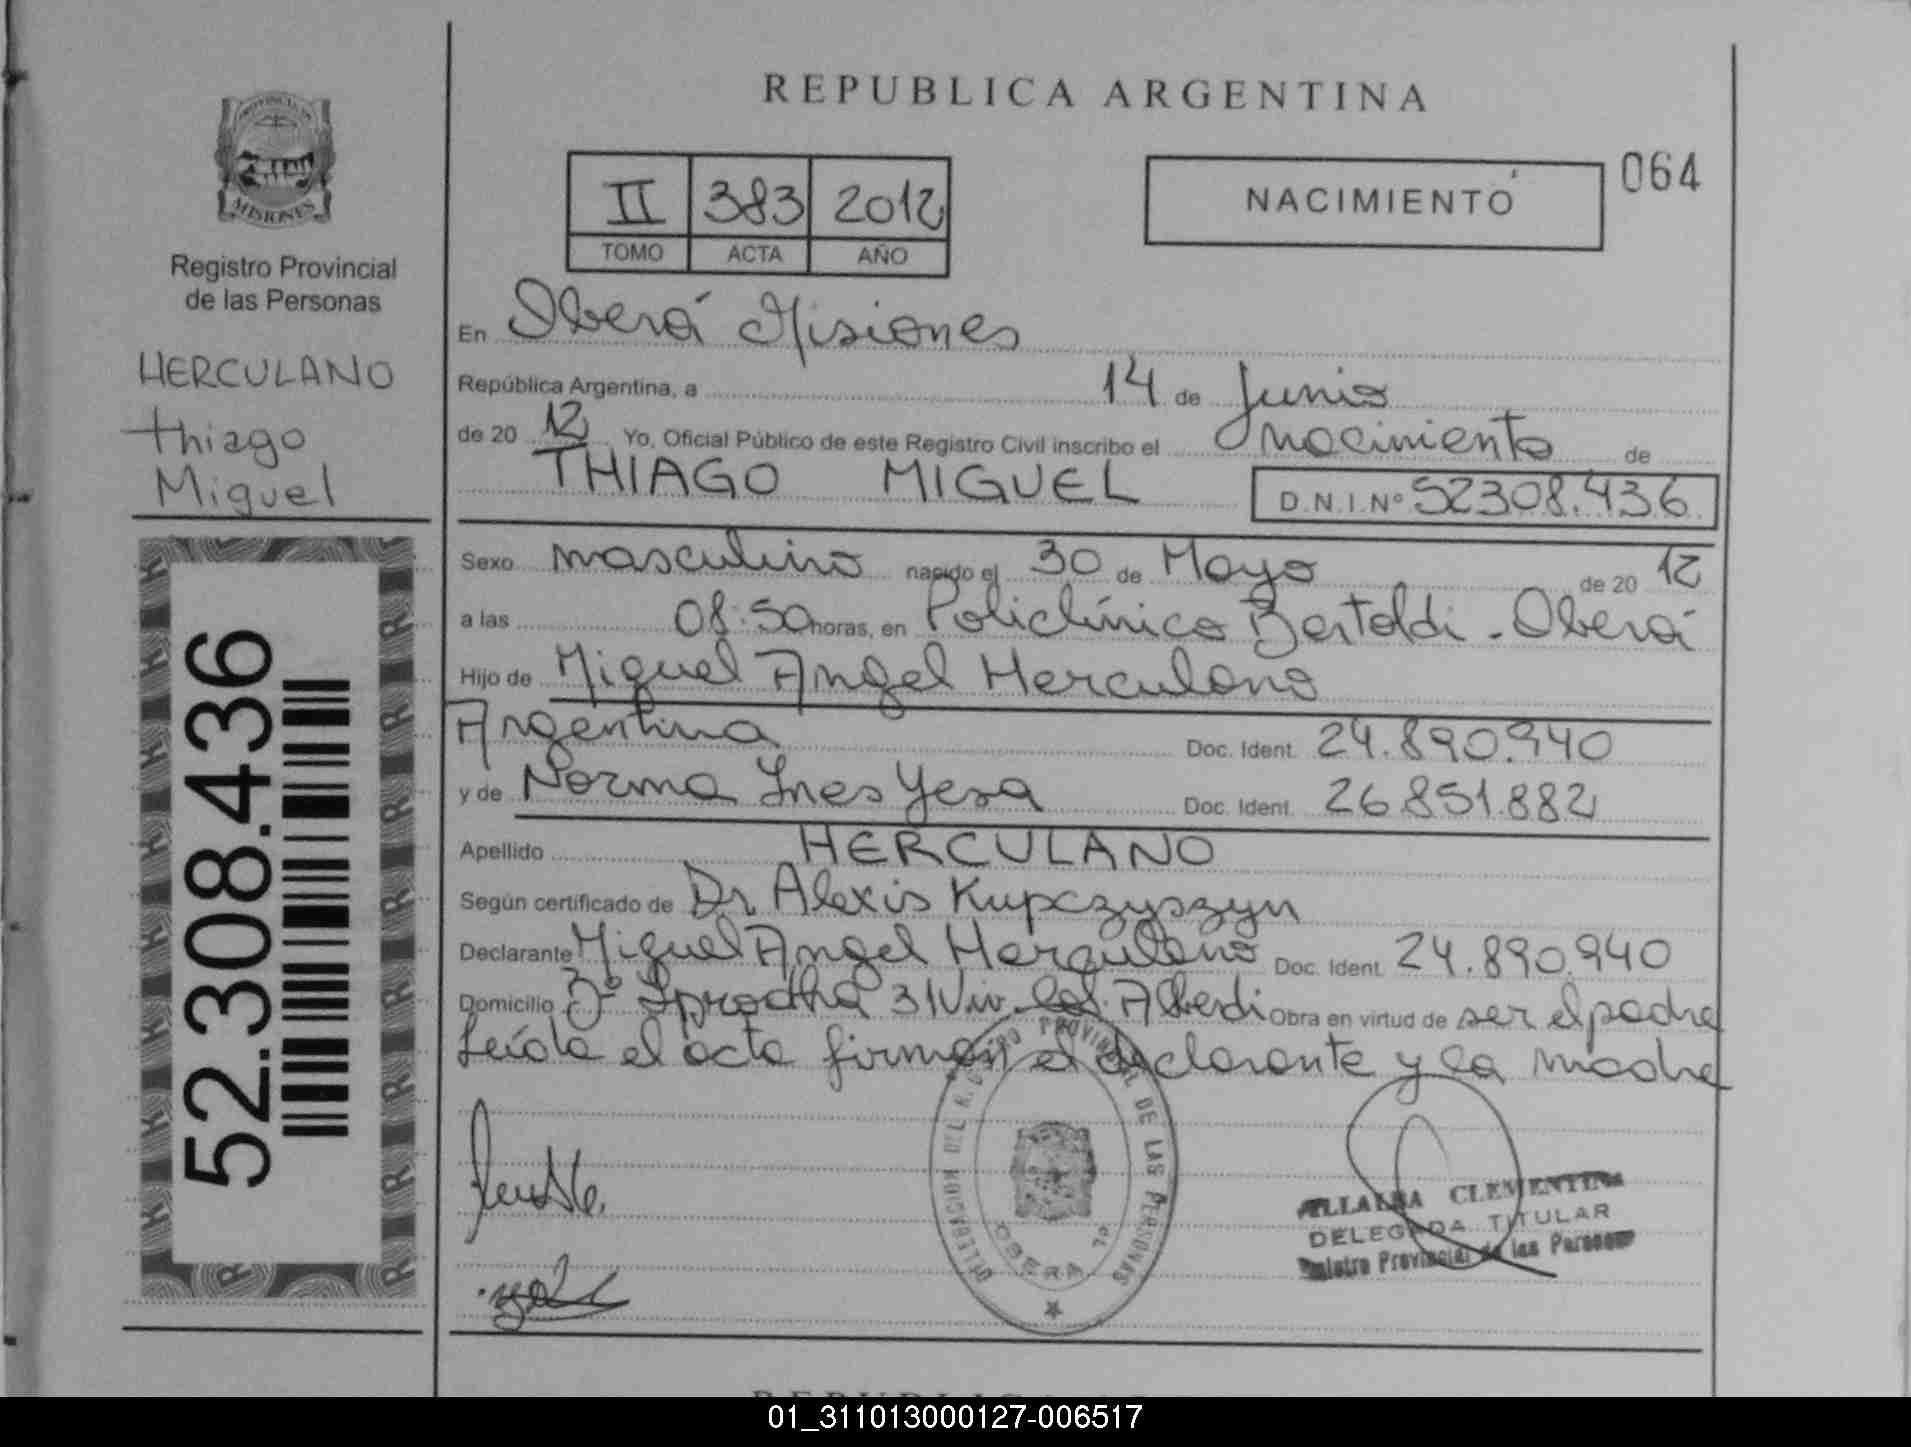 REPUBLICA ARGENTINA
PROVINCIA DE
MISIONES
Registro Provincial
de las Personas
HERCULANO
Thiago
Miguel
52.308.436
II 383 2012
TOMO ACTA AÑO
NACIMIENTO
064
En Oberá Misiones
República Argentina, a 14 de Junio
de 20 12 Yo, Oficial Público de este Registro Civil inscribo el nacimiento de
THIAGO MIGUEL D.N.I.Nº 52308.436
Sexo masculino nacido el 30 de Mayo de 20 12
a las 08:50 horas, en Policlínico Bertoldi - Oberá
Hijo de Miguel Angel Herculano
Argentina Doc. Ident. 24.890.940
y de Norma Ines Yesa Doc. Ident. 26.851.882
Apellido HERCULANO
Según certificado de Dr Alexis Kupczyszyn
Declarante Miguel Angel Herculano Doc. Ident. 24.890.940
Domicilio Bº Iprodha 31 Viv. Col. Alberdi Obra en virtud de ser el padre
Leída el acta firman el declarante y la madre
DELEGACION DEL REGISTRO PROVINCIAL DE LAS PERSONAS
OBERA
VILLALBA CLEMENTINA
DELEGADA TITULAR
Registro Provincial de las Personas
01_311013000127-006517